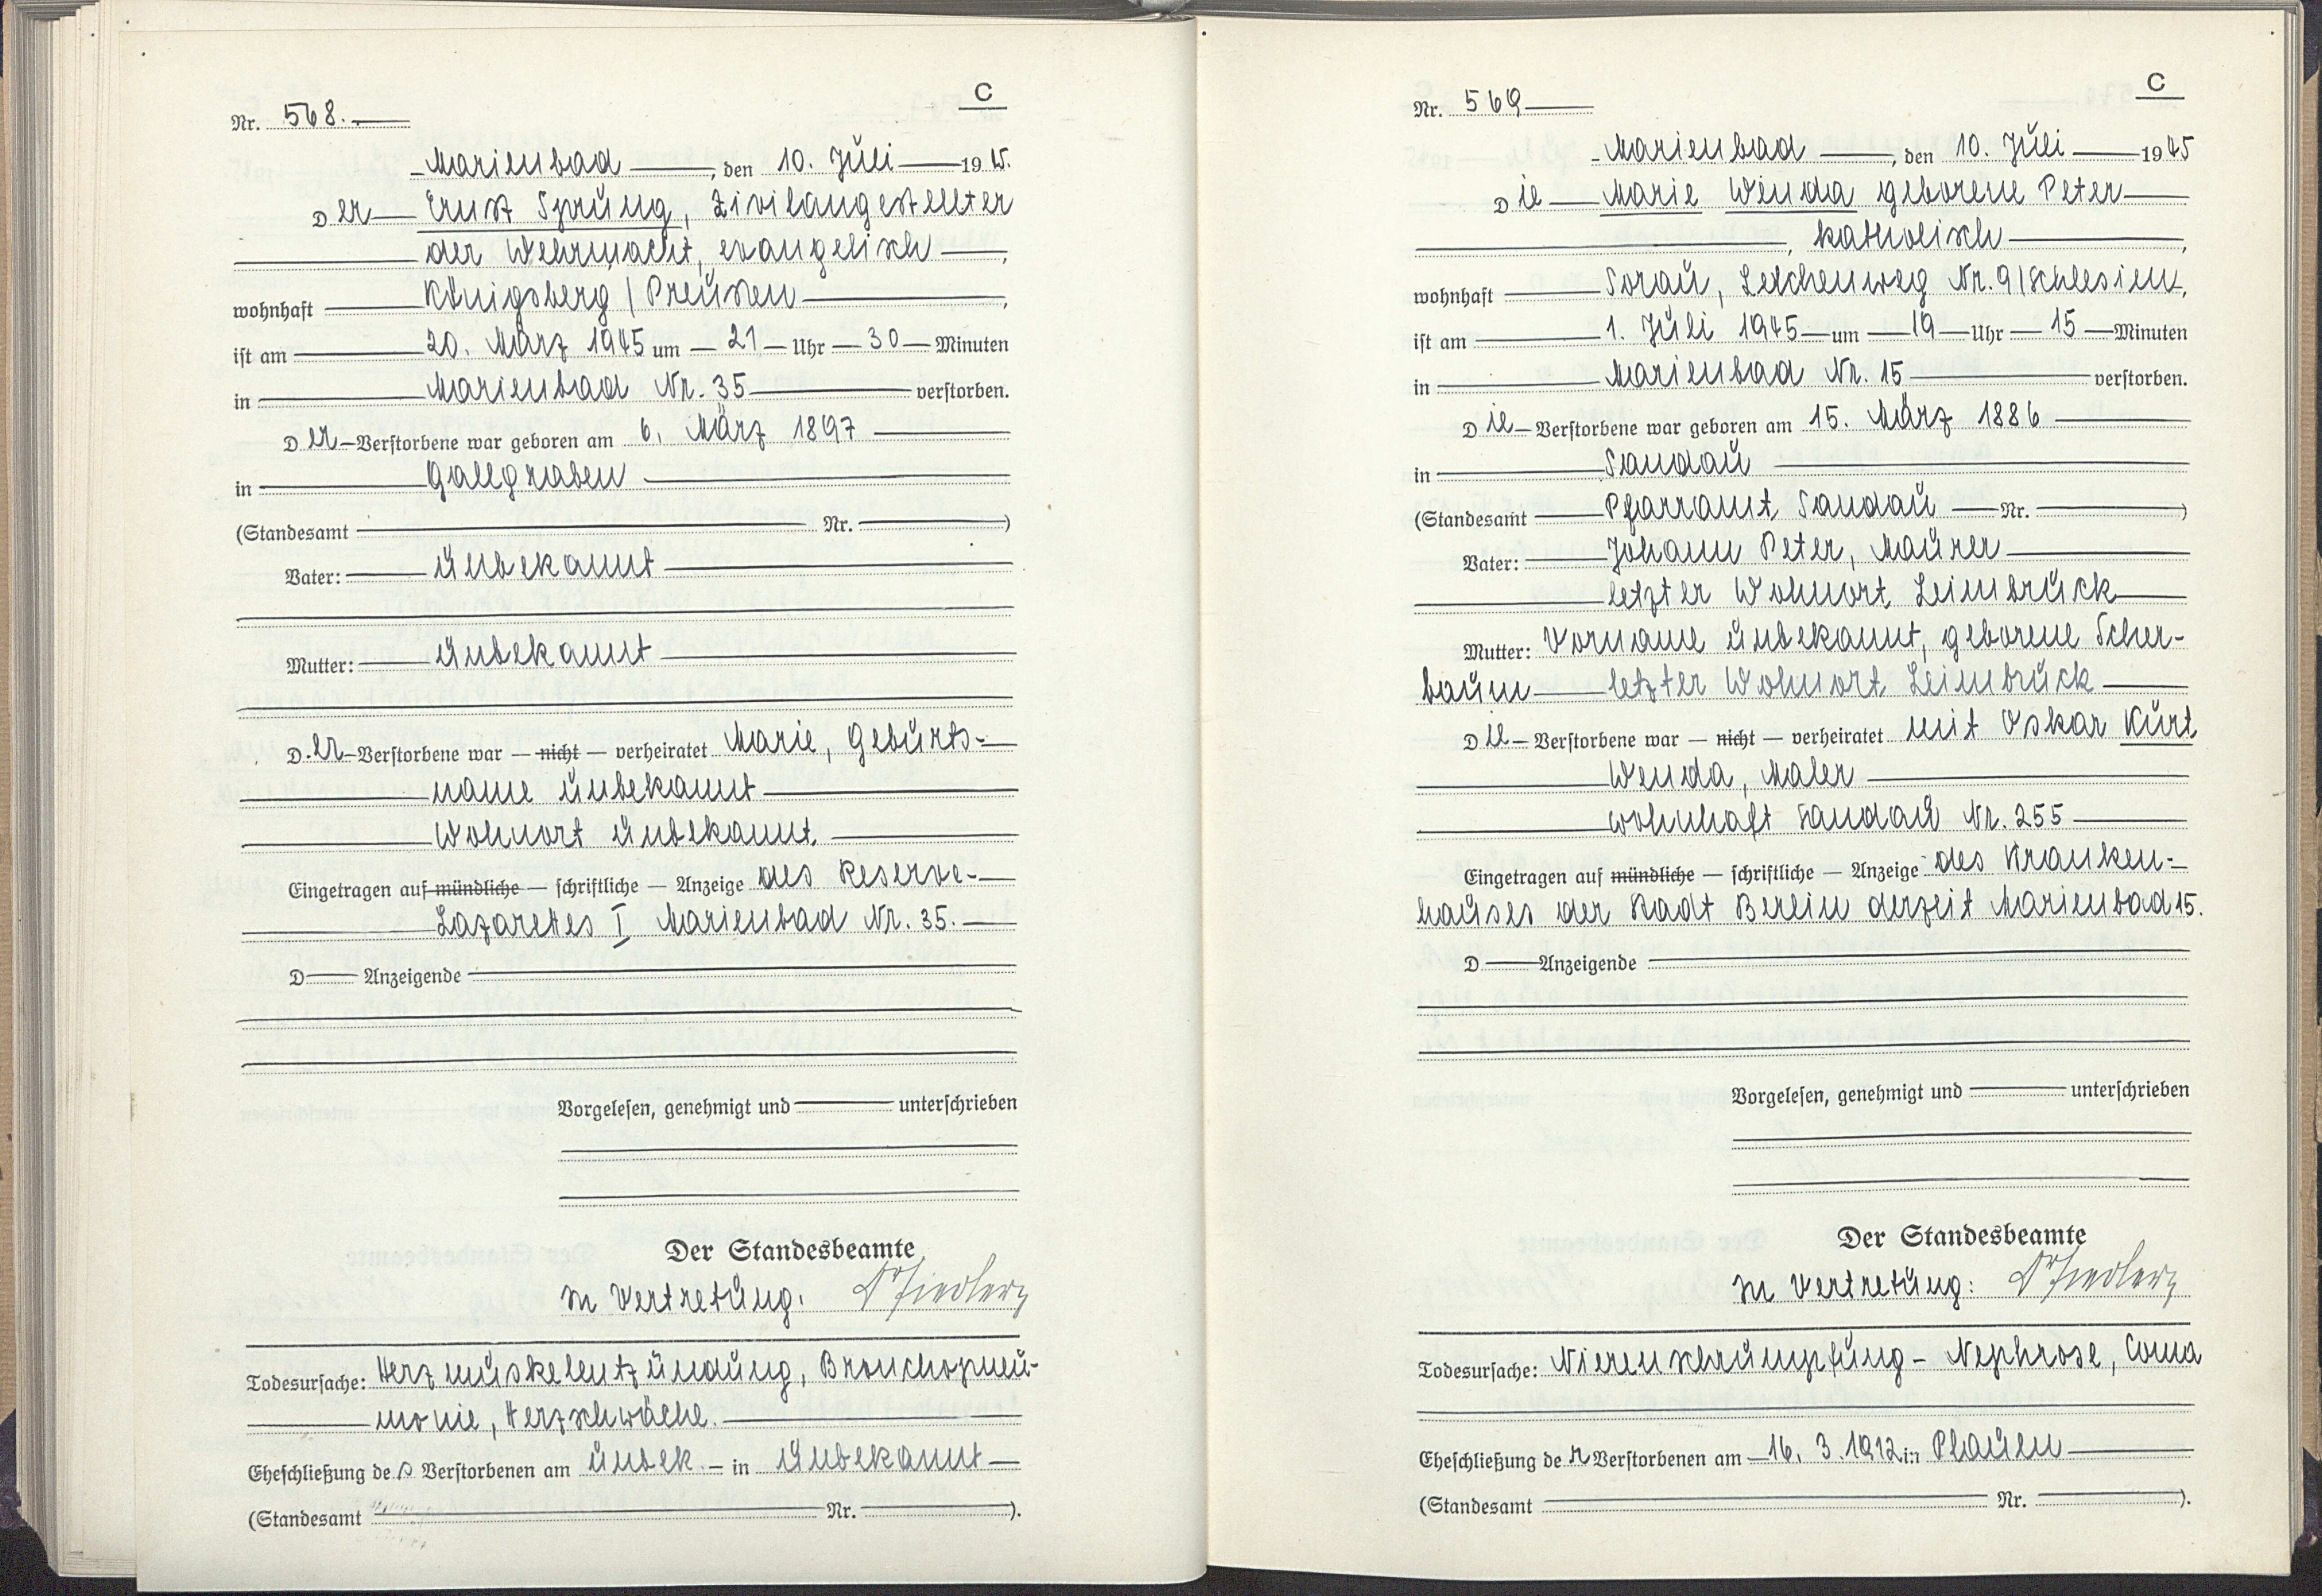 C
Nr. 568.
Marienbad, den 10. Juli 1945.
Der Ernst Sprung, Zivilangestellter
der Wehrmacht, evangelisch,
wohnhaft Königsberg / Preußen,
ist am 20. März 1945 um 21 Uhr 30 Minuten
in Marienbad Nr. 35 verstorben.
Der Verstorbene war geboren am 6. März 1897
in Gallgraben
(Standesamt Nr. )
Vater: unbekannt
Mutter: unbekannt
Der Verstorbene war — nicht — verheiratet Marie, Geburts-
name unbekannt
Wohnort unbekannt.
Eingetragen auf mündliche — schriftliche — Anzeige des Reserve-
Lazarettes I Marienbad Nr. 35.
D Anzeigende
Vorgelesen, genehmigt und unterschrieben
Der Standesbeamte
In Vertretung: Dr Fiedlerz
Todesursache: Herzmuskelentzündung, Bronchopneu-
monie, Herzschwäche.
Eheschließung des Verstorbenen am unbek. in unbekannt
(Standesamt Nr. ).
C
Nr. 569
Marienbad, den 10. Juli 1945
Die Marie Wenda geborene Peter
, katholisch,
wohnhaft Sorau, Lerchenweg Nr. 9/Schlesien,
ist am 1. Juli 1945 um 19 Uhr 15 Minuten
in Marienbad Nr. 15 verstorben.
Die Verstorbene war geboren am 15. März 1886
in Sandau
(Standesamt Pfarramt Sandau Nr. )
Vater: Johann Peter, Maurer
letzter Wohnort Leimbruck
Mutter: Vorname unbekannt, geborene Scher-
baum letzter Wohnort Leimbruck
Die Verstorbene war — nicht — verheiratet mit Oskar Kurt
Wenda, Maler
wohnhaft Sandau Nr. 255
Eingetragen auf mündliche — schriftliche — Anzeige des Kranken-
hauses der Stadt Berlin derzeit Marienbad 15.
D Anzeigende
Vorgelesen, genehmigt und unterschrieben
Der Standesbeamte
In Vertretung: Dr Fiedlerz
Todesursache: Nierenschrumpfung - Nephrose, Coma
Eheschließung der Verstorbenen am 16. 3. 1912 in Plauen
(Standesamt Nr. ).